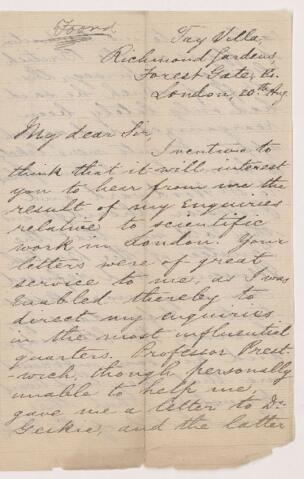 Foord
Tay Villa,
Richmond Gardens
Forest Gate, E.
London, 20th Aug.
My dear Sir,
I venture to
think that it will interest
you to hear from me the
result of my Enquiries
relative to scientific
work in London. Your
letters were of great
service to me, as I was
enabled thereby to
direct my enquiries
in the most influential
quarters. Professor Prest-
-wich, though personally
unable to help me,
gave me a letter to Dr
Geikie, and the latter